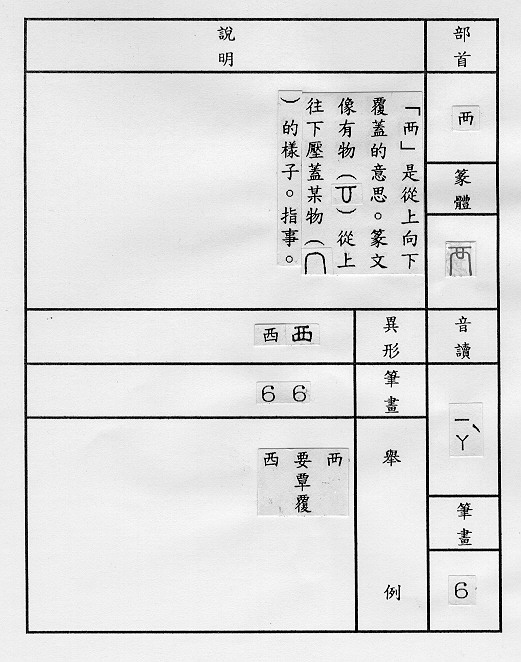 部首
襾
篆體
音讀
ㄧㄚˋ
筆畫
6
說明
「襾」是從上向下
覆蓋的意思。篆文
像有物（）從上
往下壓蓋某物（
）的樣子。指事。
異形
覀
西
筆畫
6
6
舉例
襾
要覃覆
西